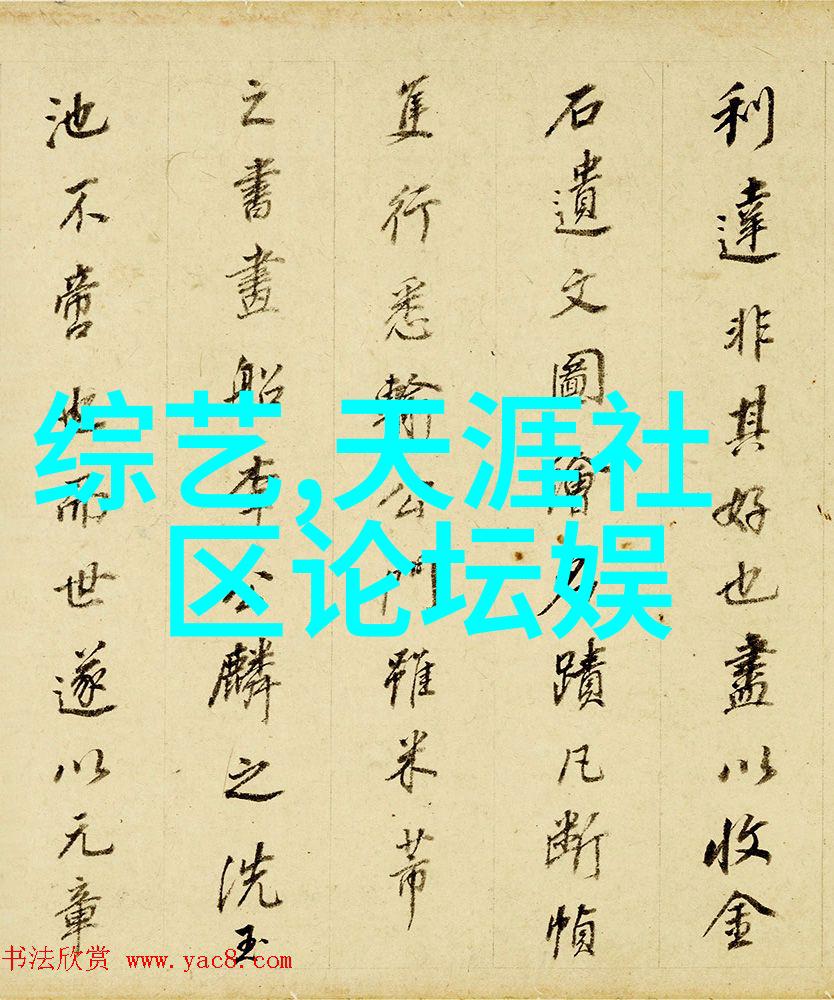 利達非其好也盡以收金
石遺文圖繪名蹟凡斷幀
隻行悉輸公門雖米芾
之書畫船李公麟之洗玉
池不啻也而世遂以元章
综艺,天涯社
区论坛娱
书法欣赏 www.yac8.com